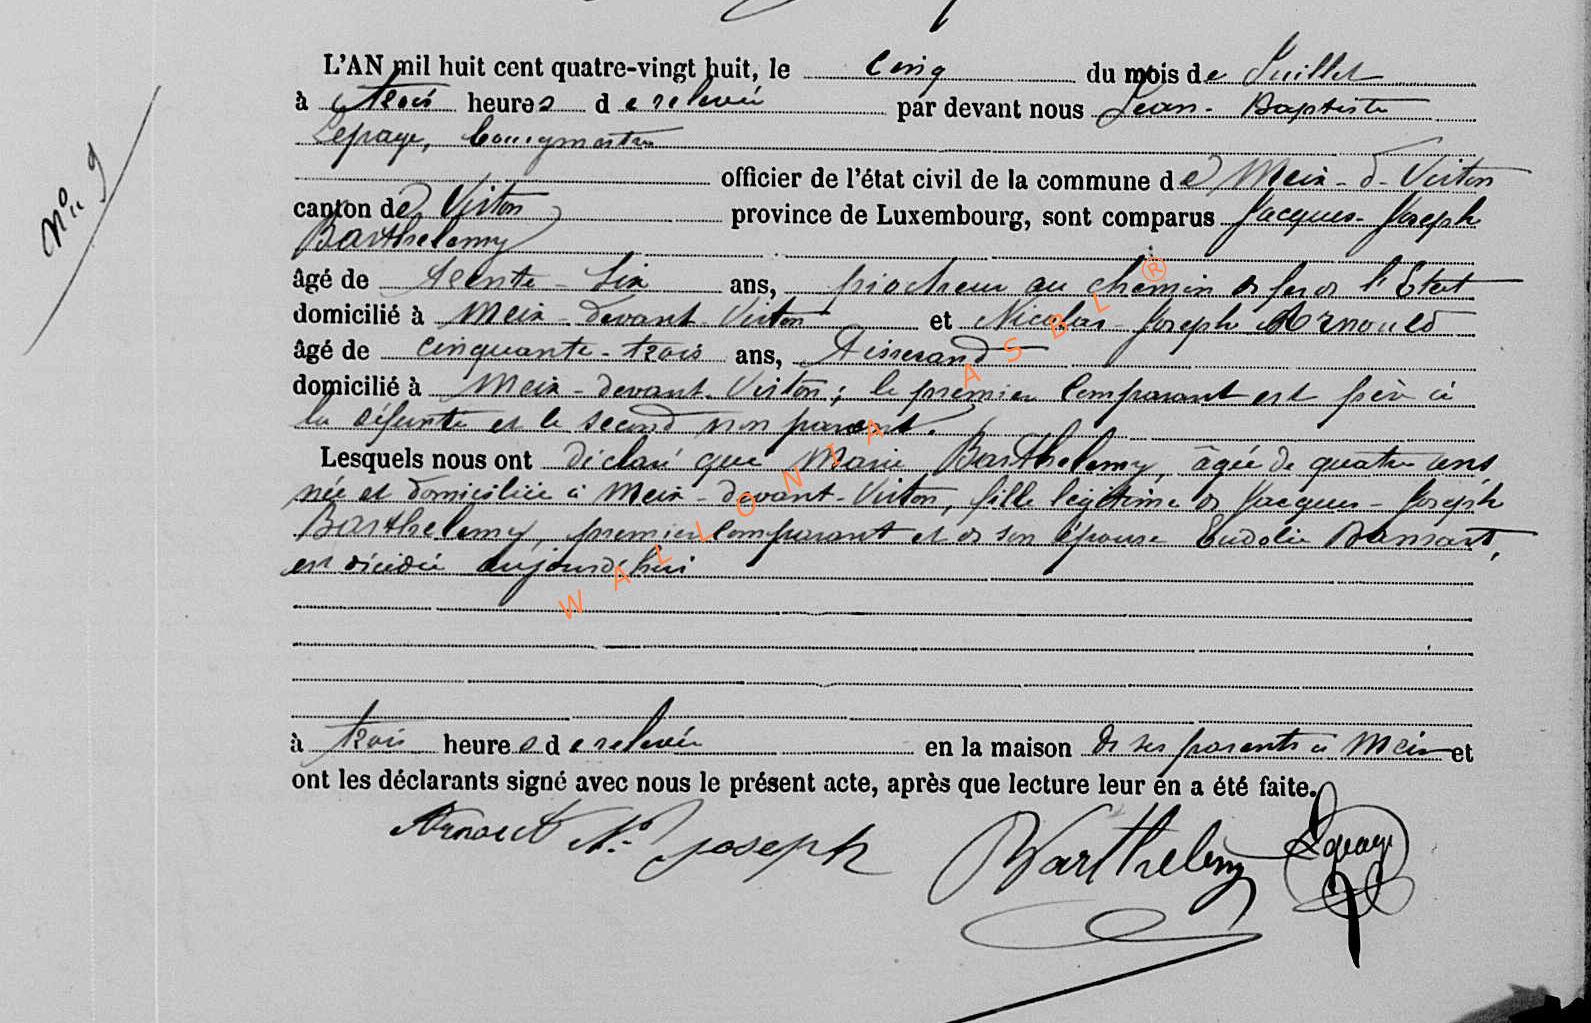 N° 9
L'AN mil huit cent quatre-vingt huit, le cinq du mois de Juillet
à trois heures de relevée par devant nous Jean-Baptiste
Lepage, bourgmestre
officier de l'état civil de la commune de Meix-d-Virton
canton de Virton province de Luxembourg, sont comparus Jacques-Joseph
Barthelemy
âgé de trente-six ans, piocheur au chemin de fer de l'Etat
domicilié à Meix-devant-Virton et Nicolas-Joseph Arnould
âgé de cinquante-trois ans, Tisserand
domicilié à Meix-devant-Virton; le premier comparant est père à
la défunte et le second non parent.
Lesquels nous ont déclaré que Marie Barthelemy, âgée de quatre ans,
née et domiciliée à Meix-devant-Virton, fille légitime de Jacques-Joseph
Barthelemy, premier comparant et de son épouse Eudolie Dansart,
est décédée aujourd'hui
à trois heures de relevée en la maison de ses parents à Meix et
ont les déclarants signé avec nous le présent acte, après que lecture leur en a été faite.
Arnoult N. Joseph Barthelemy Lepage
WALLONIA ASBL ®